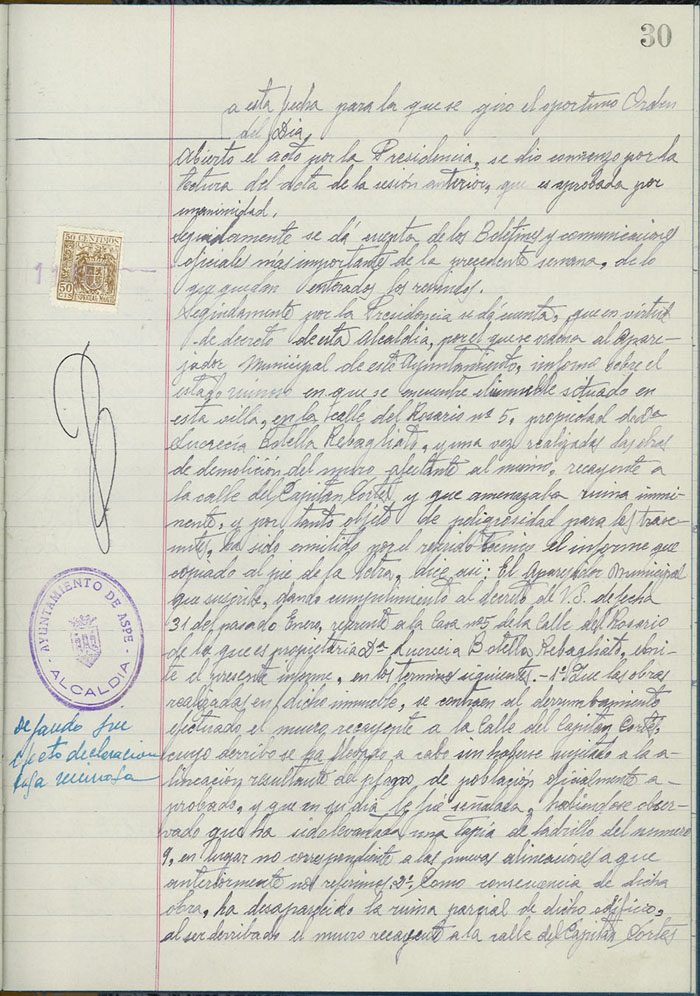 30
a esta fecha para la que se giro el oportuno Orden
del Dia,
Abierto el acto por la Presidencia, se dio comienzo por la
lectura del acta de la sesión anterior, que es aprobada por
unanimidad.
Seguidamente se dá cuenta de los Boletines y comunicaciones
oficiales mas importantes de la precedente semana, de lo
que quedan enterados los reunidos.
Seguidamente por la Presidencia se dá cuenta, que en virtud
de decreto de esta Alcaldia, por el que se ordena al Apare-
jador Municipal de este Ayuntamiento, informe sobre el
estado ruinoso en que se encuentra el inmueble situado en
esta villa, en la Calle del Rosario nº 5, propiedad de Dª
Lucrecia Botella Rebagliato, y una vez realizadas las obras
de demolición del muro afectante al mismo, recayente a
la calle del Capitan Cortes, y que amenazaba ruina inmi-
nente, y por tanto objeto de peligrosidad para los transe-
untes, ha sido emitido por el referido técnico el informe que
copiado al pie de la letra, dice asi: El Aparejador Municipal
que suscribe, dando cumplimiento al decreto de V.S. de fecha
31 del pasado Enero, referente a la Casa nº 5 de la Calle del Rosario
de la que es propietaria Dª Lucrecia Botella Rebagliato, emi-
te el presente informe, en los terminos siguientes.- 1º Que las obras
realizadas en dicho inmueble, se contraen al derrumbamiento
efectuado el muro recayente a la Calle del Capitan Cortés,
cuyo derribo se ha llevado a cabo sin haberse ajustado a la a-
lineación resultante del plano de población oficialmente a-
probado, y que en su dia le fué señalada, habiendose obser-
vado que ha sido levantada una tapia de ladrillo del numero
9, en lugar no correspondiente a las nuevas alineaciones a que
anteriormente nos referimos. 2º. Como consecuencia de dicha
obra, ha desaparecido la ruina parcial de dicho edificio,
al ser derribado el muro recayente a la calle del Capitan Cortés
50 CENTIMOS
50 CTS
ESPECIAL MOVIL
AYUNTAMIENTO DE ASPE
ALCALDIA
Dejando sin
efecto declaracion
casa ruinosa